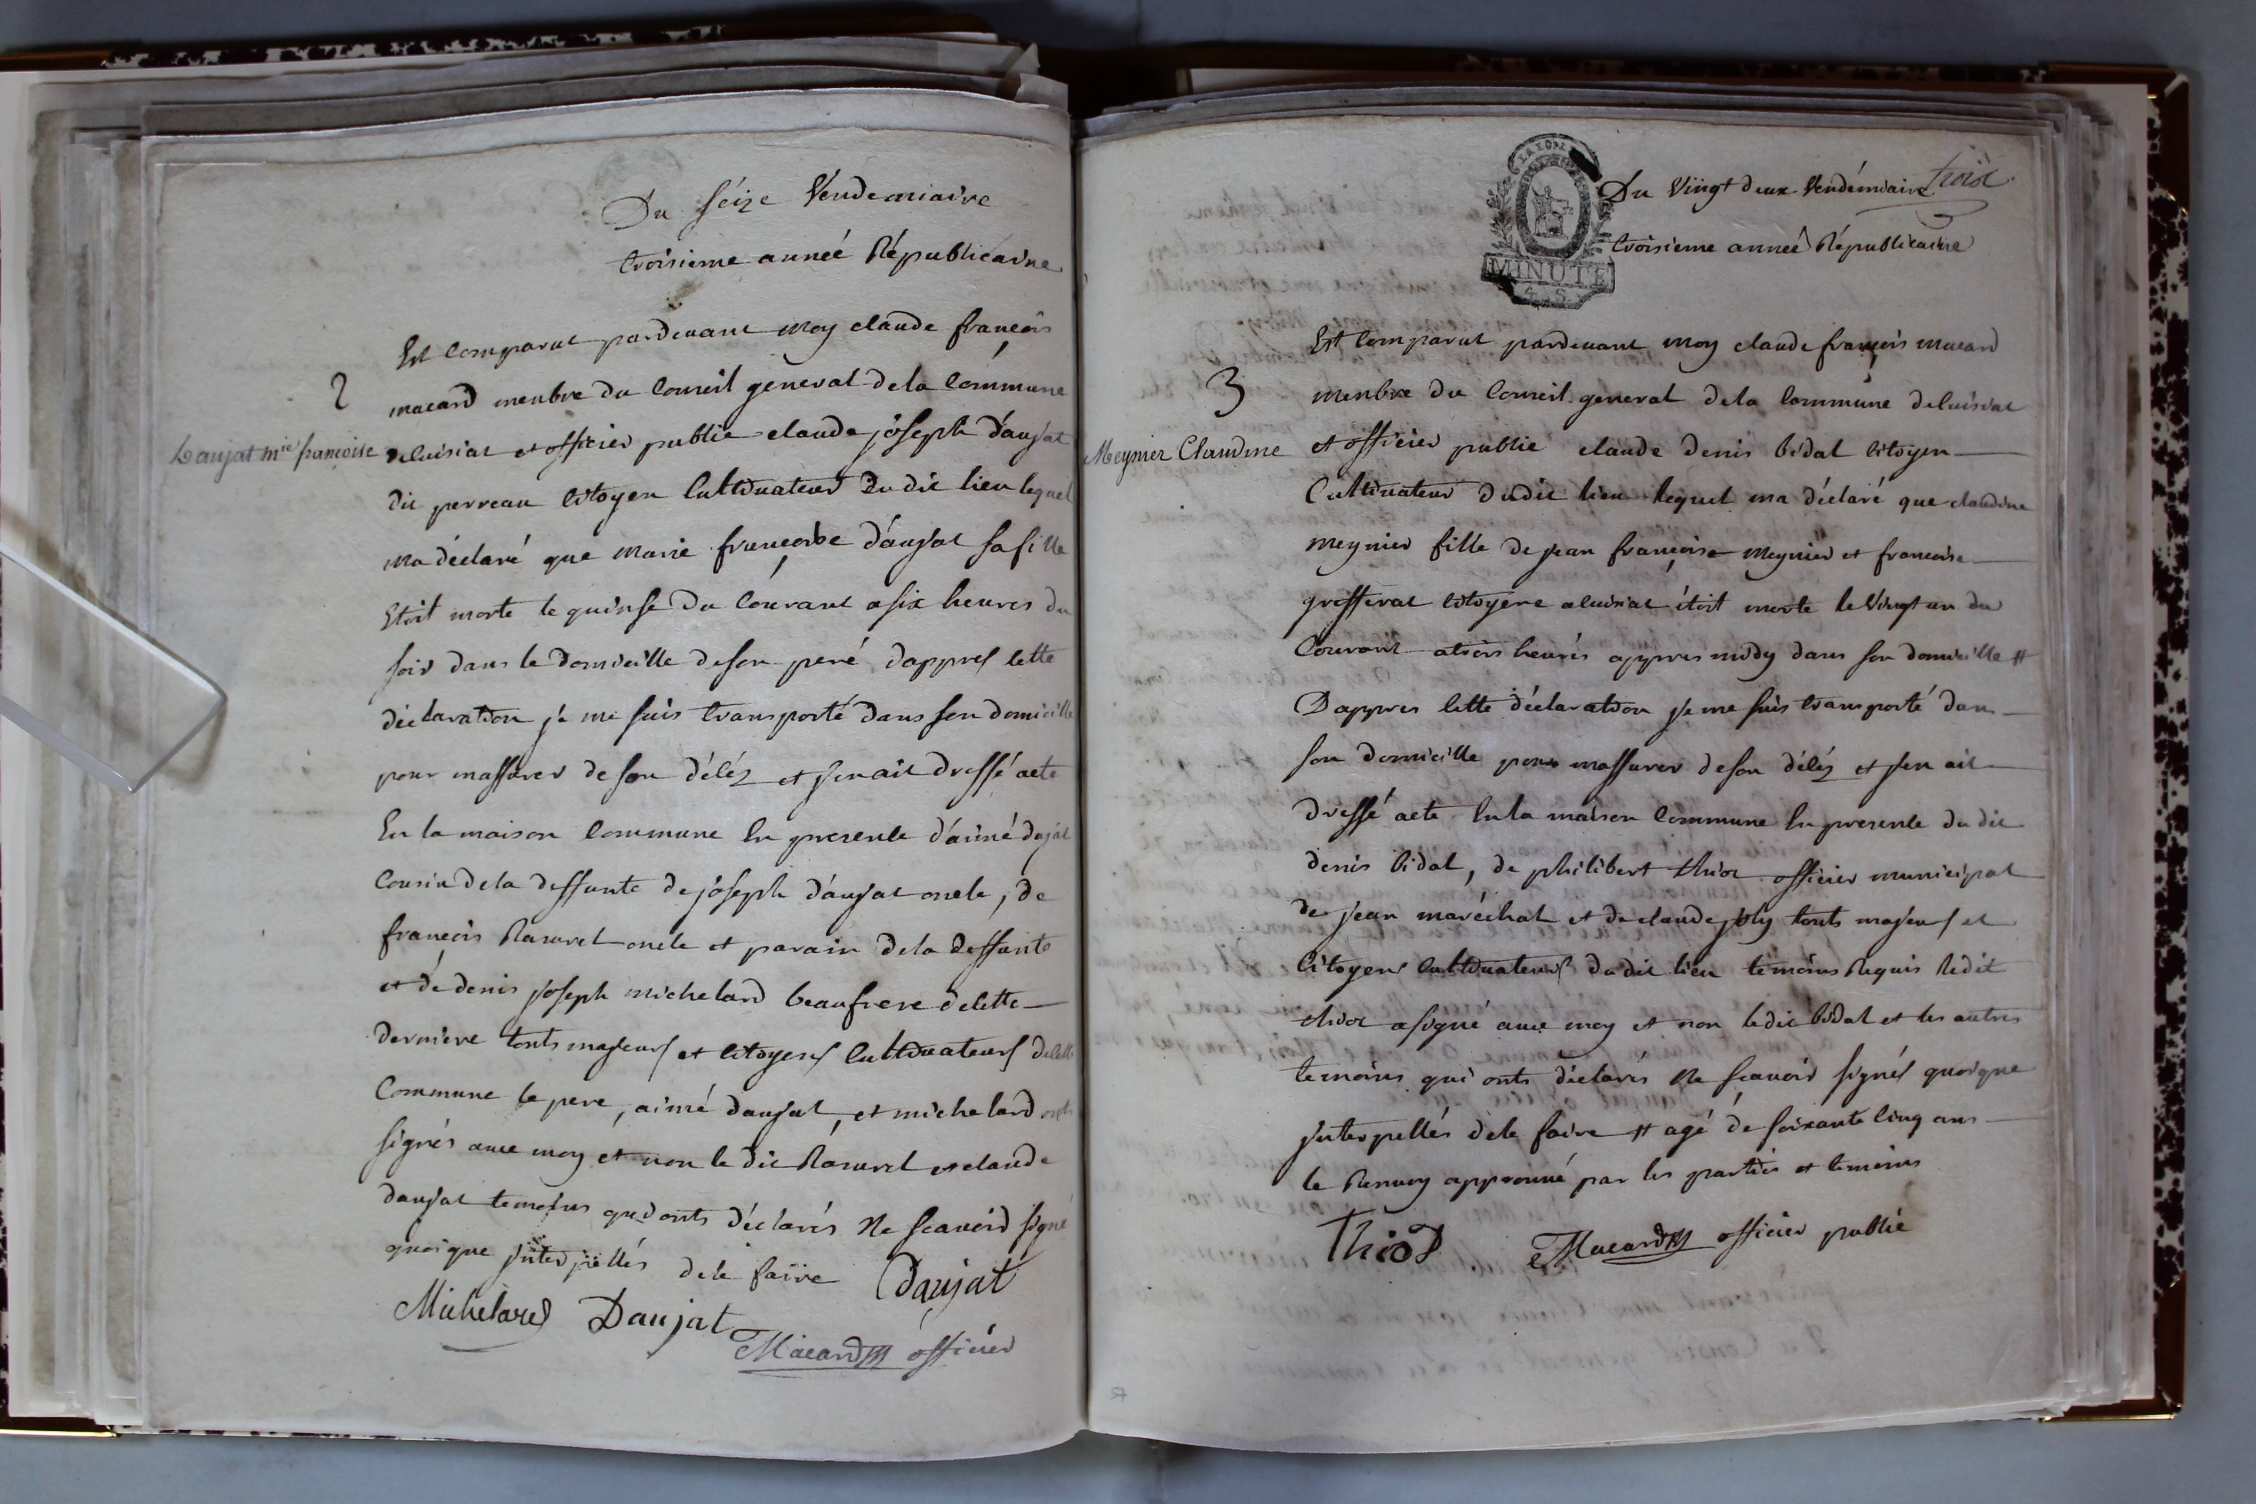 Du séize Vendemiaire
troisieme anneé Républicaine
Est comparut pardevant moy claude françois
2
macard menbre du Conseil general de la Commune
Daujat mie françoise
deluisiat et officier public claude joseph daujat
dit perreau Citoyen Cultivateur Du dit lieu lequel
ma déclaré que marie françoise daujat sa fille
Etoit morte le quinse du Courant a six heures du
soir dans le Domicille de son peré dappres cette
déclaration je me suis transporté dans son domicille
pour massurer de son délés et j'en ait dressé acte
En la maison Commune En presence d'aimé dujat
Cousin de la deffunte de joseph daujat oncle, de
françois Ravurel oncle et parain de la deffunte
et de denis joseph michelard beaufrere de cette
derniere touts majeurs et Citoyens Cultivateurs de cette
Commune le pere, aimé daujat, et michelard onts
signés avec moy et non le dit Ravurel et claude
daujat temoins qui onts déclarés Ne scavoir signé
quoique jnterpellés de le faire Daujat
Michelard Daujat
Macard officier
troix
Du Vingt deux Vendémiaire
troisieme anneé Républicaine
MINUTE
4. S.
Est Comparut pardevant moy claude françois macard
3
menbre du Conseil general de la Commune deluisiat
Meynier Claudine
et officier public claude denis bidal Citoyen
Cultivateur du dit lieu lequel ma déclaré que claudine
meynier fille de jean françois meynier et francoise
grifferat Citoyene a luisiat étoit morte le Vingt un du
Courant a trois heurés appres midy dans son domicille #
Dappres cette déclaration je me suis transporté dans
son domicille pour massurer de son délés et j'en ait
dressé acte En la maison Commune En presence du dit
denis bidal, de philibert thior officier municipal
de jean maréchal et de claude joly touts majeurs et
Citoyens Cultivateurs du dit lieu témoins Requis le dit
thior a signé avec moy et non le dit bidal et les autres
temoins qui onts déclarés Ne scavoir signés quoique
jnterpellés de le faire # agé de soixante Cinq ans
le Renvoy approuvé par les parties et temoins
Thior Macard officier public